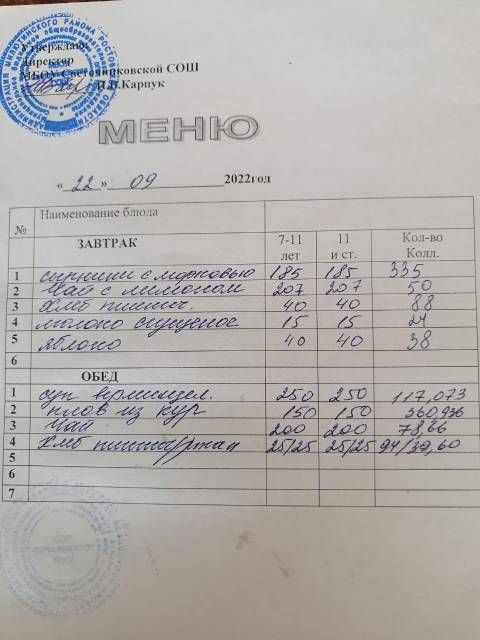 Утверждаю
Директор
МБОУ Светочниковской СОШ
И.В.Карпук
МЕНЮ
«22» 09 2022год
№ Наименование блюда
ЗАВТРАК 7-11 лет 11 и ст. Кол-во Колл.
1 сырники с морковью 185 185 335
2 чай с лимоном 207 207 50
3 хлеб пшенич. 40 40 88
4 молоко сгущеное 15 15
5 яблоко 40 40 38
6
ОБЕД
1 суп вермишел. 250 250 117,073
2 плов из кур 150 150 360,936
3 чай 200 200 78,66
4 хлеб 25/25 25/25 94/39,60
5
6
7